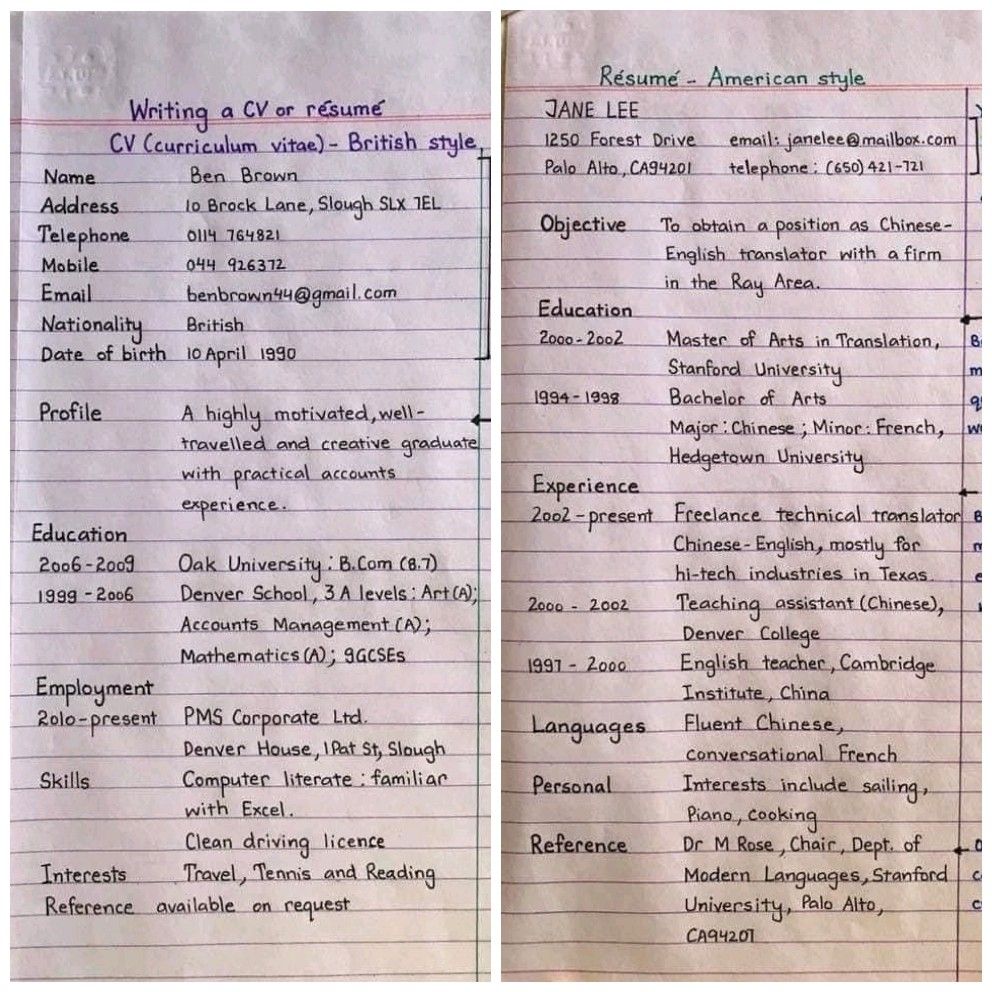 Writing a CV or résumé
CV (curriculum vitae) - British style
Name Ben Brown
Address 10 Brock Lane, Slough SLX 7EL
Telephone 0114 764821
Mobile 044 926372
Email benbrown44@gmail.com
Nationality British
Date of birth 10 April 1990
Profile A highly motivated, well-
travelled and creative graduate
with practical accounts
experience.
Education
2006-2009 Oak University : B.Com (8.7)
1999 - 2006 Denver School, 3 A levels : Art (A);
Accounts Management (A);
Mathematics (A); 9GCSEs
Employment
2010-present PMS Corporate Ltd.
Denver House, 1 Pat St, Slough
Skills Computer literate : familiar
with Excel.
Clean driving licence
Interests Travel, Tennis and Reading
Reference available on request
Résumé - American style
JANE LEE
1250 Forest Drive email: janelee@mailbox.com
Palo Alto, CA94201 telephone : (650) 421-721
Objective To obtain a position as Chinese-
English translator with a firm
in the Ray Area.
Education
2000-2002 Master of Arts in Translation,
Stanford University
1994-1998 Bachelor of Arts
Major : Chinese ; Minor : French,
Hedgetown University
Experience
2002-present Freelance technical translator
Chinese-English, mostly for
hi-tech industries in Texas.
2000 - 2002 Teaching assistant (Chinese),
Denver College
1997 - 2000 English teacher, Cambridge
Institute, China
Languages Fluent Chinese,
conversational French
Personal Interests include sailing,
Piano, cooking
Reference Dr M Rose, Chair, Dept. of
Modern Languages, Stanford
University, Palo Alto,
CA94201